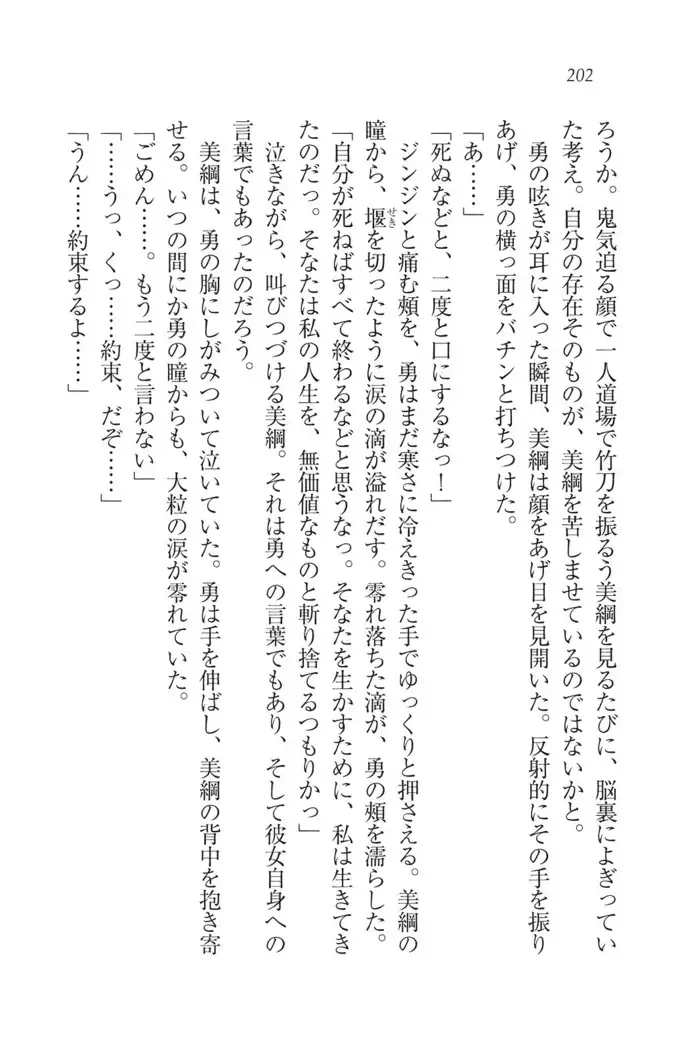 202
ろうか。鬼気迫る顔で一人道場で竹刀を振るう美綱を見るたびに、脳裏によぎってい
た考え。自分の存在そのものが、美綱を苦しませているのではないかと。
勇の呟きが耳に入った瞬間、美綱は顔をあげ目を見開いた。反射的にその手を振り
あげ、勇の横っ面をバチンと打ちつけた。
「あ……」
「死ぬなどと、二度と口にするなっ！」
ジンジンと痛む頰を、勇はまだ寒さに冷えきった手でゆっくりと押さえる。美綱の
瞳から、堰を切ったように涙の滴が溢れだす。零れ落ちた滴が、勇の頰を濡らした。
せき
「自分が死ねばすべて終わるなどと思うなっ。そなたを生かすために、私は生きてき
たのだっ。そなたは私の人生を、無価値なものと斬り捨てるつもりかっ」
泣きながら、叫びつづける美綱。それは勇への言葉でもあり、そして彼女自身への
言葉でもあったのだろう。
美綱は、勇の胸にしがみついて泣いていた。勇は手を伸ばし、美綱の背中を抱き寄
せる。いつの間にか勇の瞳からも、大粒の涙が零れていた。
「ごめん……。もう二度と言わない」
「……うっ、くっ……約束、だぞ……」
「うん……約束するよ……」